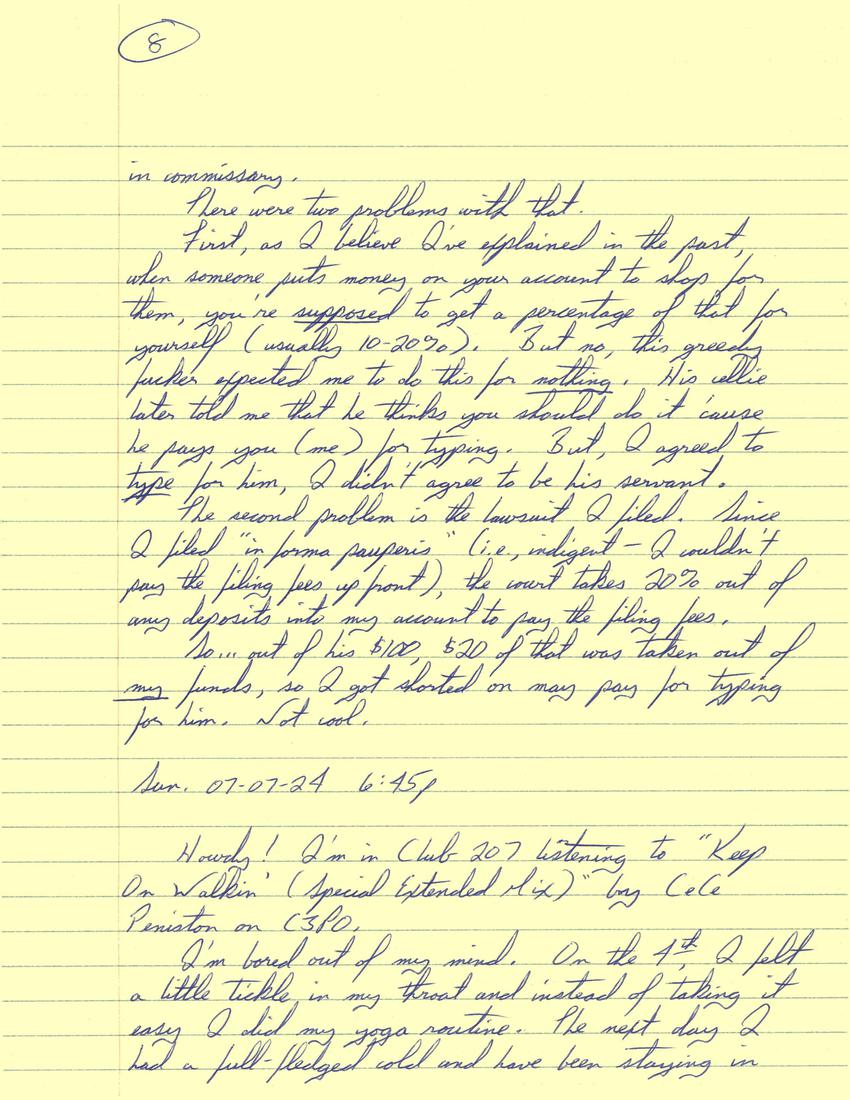 8
in commissary.
There were two problems with that.
First, as I believe I've explained in the past,
when someone puts money on your account to shop for
them, you're supposed to get a percentage of that for
yourself (usually 10-20%). But no, this greedy
fucker expected me to do this for nothing. His cellie
later told me that he thinks you should do it 'cause
he pays you (me) for typing. But, I agreed to
type for him, I didn't agree to be his servant.
The second problem is the lawsuit I filed. Since
I filed "in forma pauperis" (i.e., indigent – I couldn't
pay the filing fees up front), the court takes 20% out of
any deposits into my account to pay the filing fees.
So... out of his $100, $20 of that was taken out of
my funds, so I got shorted on may pay for typing
for him. Not cool.
Sun. 07-07-24 6:45p
Howdy! I'm in Club 207 listening to "Keep
On Walkin' (Special Extended Mix)" by CeCe
Peniston on C3PO.
I'm bored out of my mind. On the 4th, I felt
a little tickle in my throat and instead of taking it
easy I did my yoga routine. The next day I
had a full-fledged cold and have been staying in